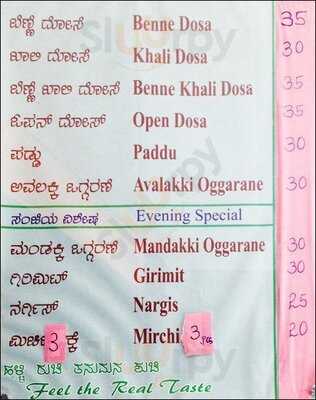 ಬೆಣ್ಣೆ ದೋಸೆ Benne Dosa 35
ಖಾಲಿ ದೋಸೆ Khali Dosa 30
ಬೆಣ್ಣೆ ಖಾಲಿ ದೋಸೆ Benne Khali Dosa 35
ಓಪನ್ ದೋಸ್ Open Dosa 35
ಪಡ್ಡು Paddu 30
ಅವಲಕ್ಕಿ ಒಗ್ಗರಣೆ Avalakki Oggarane 30
ಸಂಜೆಯ ವಿಶೇಷ Evening Special
ಮಂಡಕ್ಕಿ ಒಗ್ಗರಣೆ Mandakki Oggarane 30
ಗಿರಿಮಿಟ್ Girimit 30
ನರ್ಗಿಸ್ Nargis 25
ಮಿರ್ಚಿ 3 Mirchi 3 20
ಹಳ್ಳಿ ರುಚಿ ತನುಮನ ಖುಷಿ
Feel the Real Taste